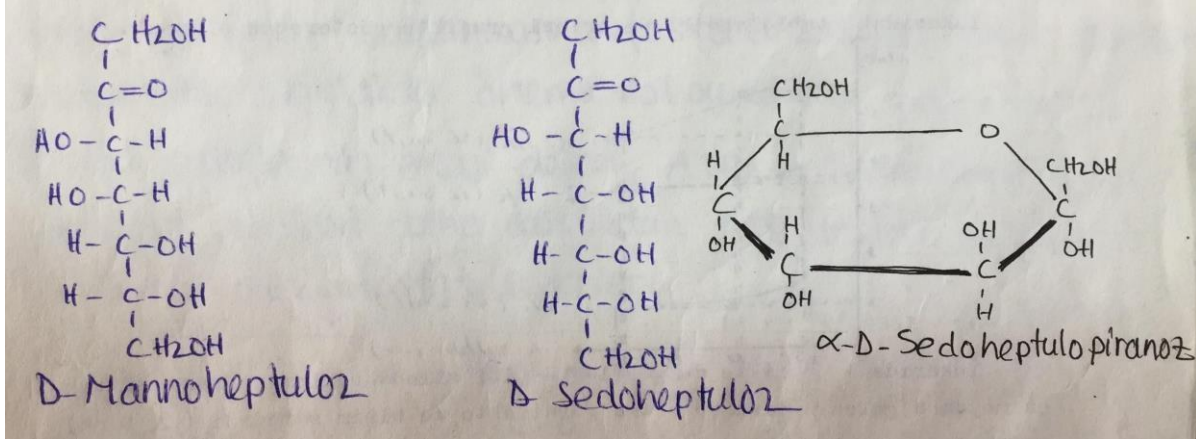 CH2OH
C=O
HO-C-H
HO-C-H
H-C-OH
H-C-OH
CH2OH
D-Mannoheptuloz
CH2OH
C=O
HO-C-H
H-C-OH
H-C-OH
H-C-OH
CH2OH
D Sedoheptuloz
CH2OH
C O
H H CH2OH
C H OH C
OH C C OH
OH H
α-D-Sedoheptulopiranoz